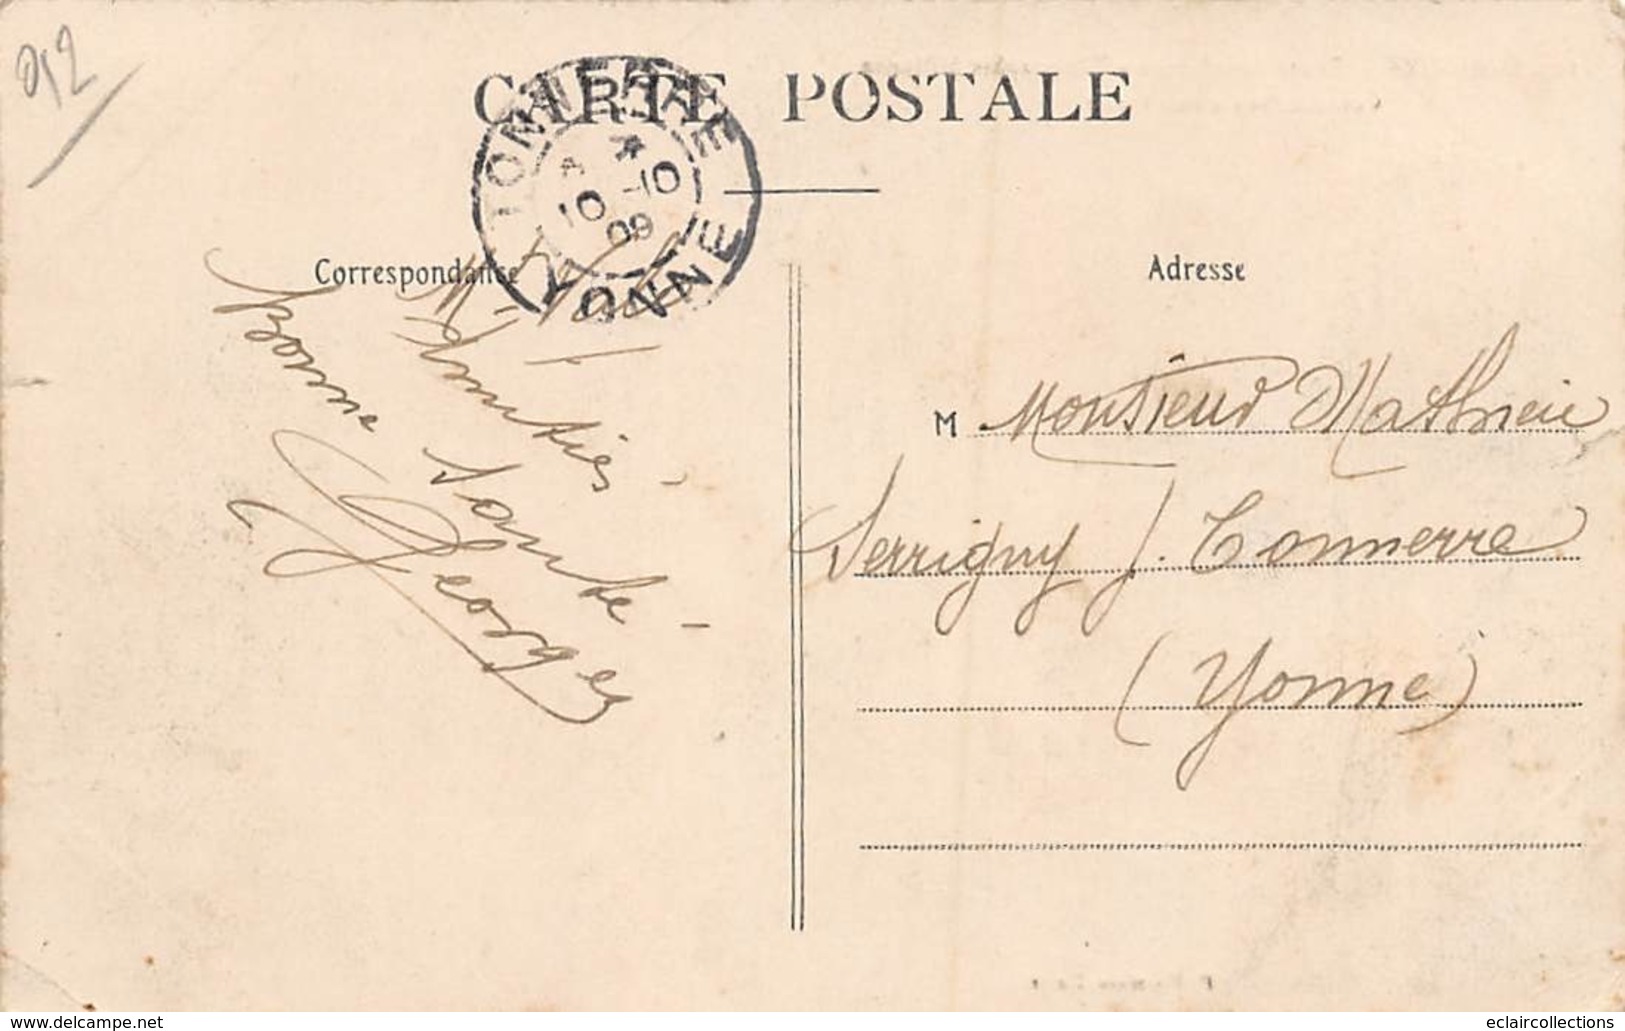 912
CARTE POSTALE
TONNERRE
10 -10
09
YONNE
Correspondance
Amitiés
Bonne Santé
Georges
Adresse
M Monsieur Mathieu
Serrigny f. Tonnerre
(Yonne)
www.delcampe.net
eclaircollections